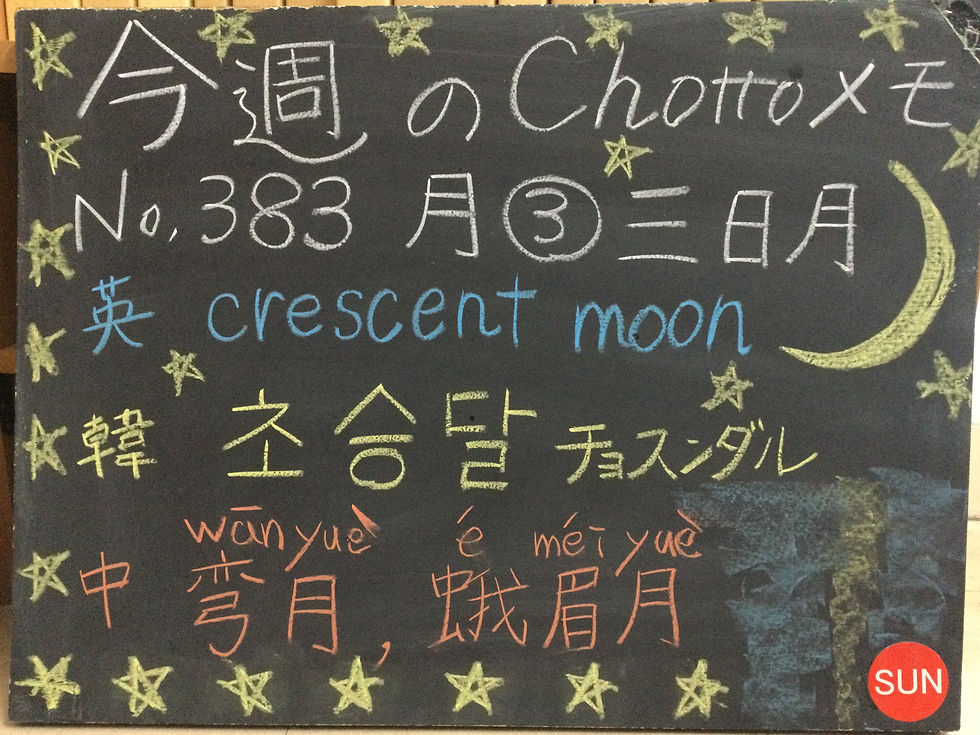 今週のChottoメモ
No.383 月③三日月
英 crescent moon
韓 초승달 チョスンダル
wānyuè é méiyuè
中 弯月,蛾眉月
SUN